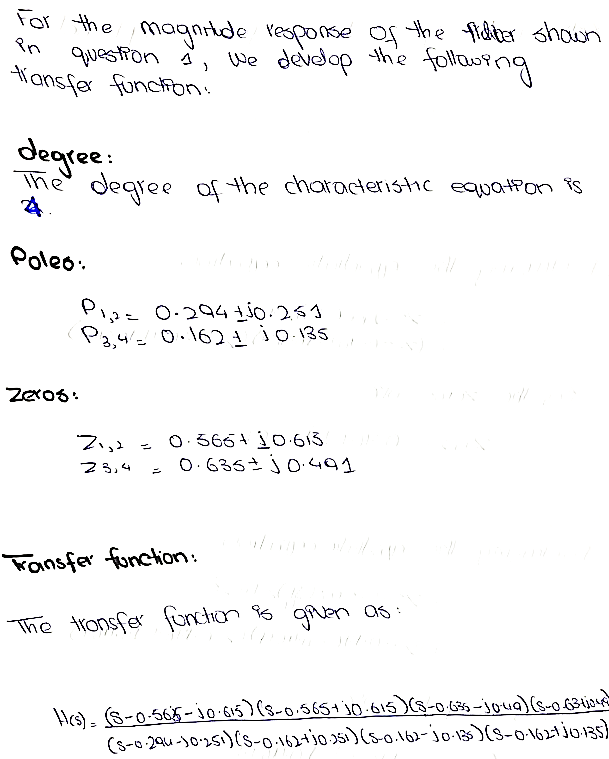 For the magnitude response of the filter shown
in question 1, we develop the following
transfer function:
degree:
The degree of the characteristic equation is
4.
Poles:
P1,2 = 0.294 ± j0.251
P3,4 = 0.162 ± j0.135
Zeros:
Z1,2 = 0.565 ± j0.615
Z3,4 = 0.635 ± j0.491
Transfer function:
The transfer function is given as:
H(s) = (s-0.565-j0.615)(s-0.565+j0.615)(s-0.635-j0.49)(s-0.63+j0.49
(s-0.294-j0.251)(s-0.162+j0.251)(s-0.162-j0.135)(s-0.162+j0.135)